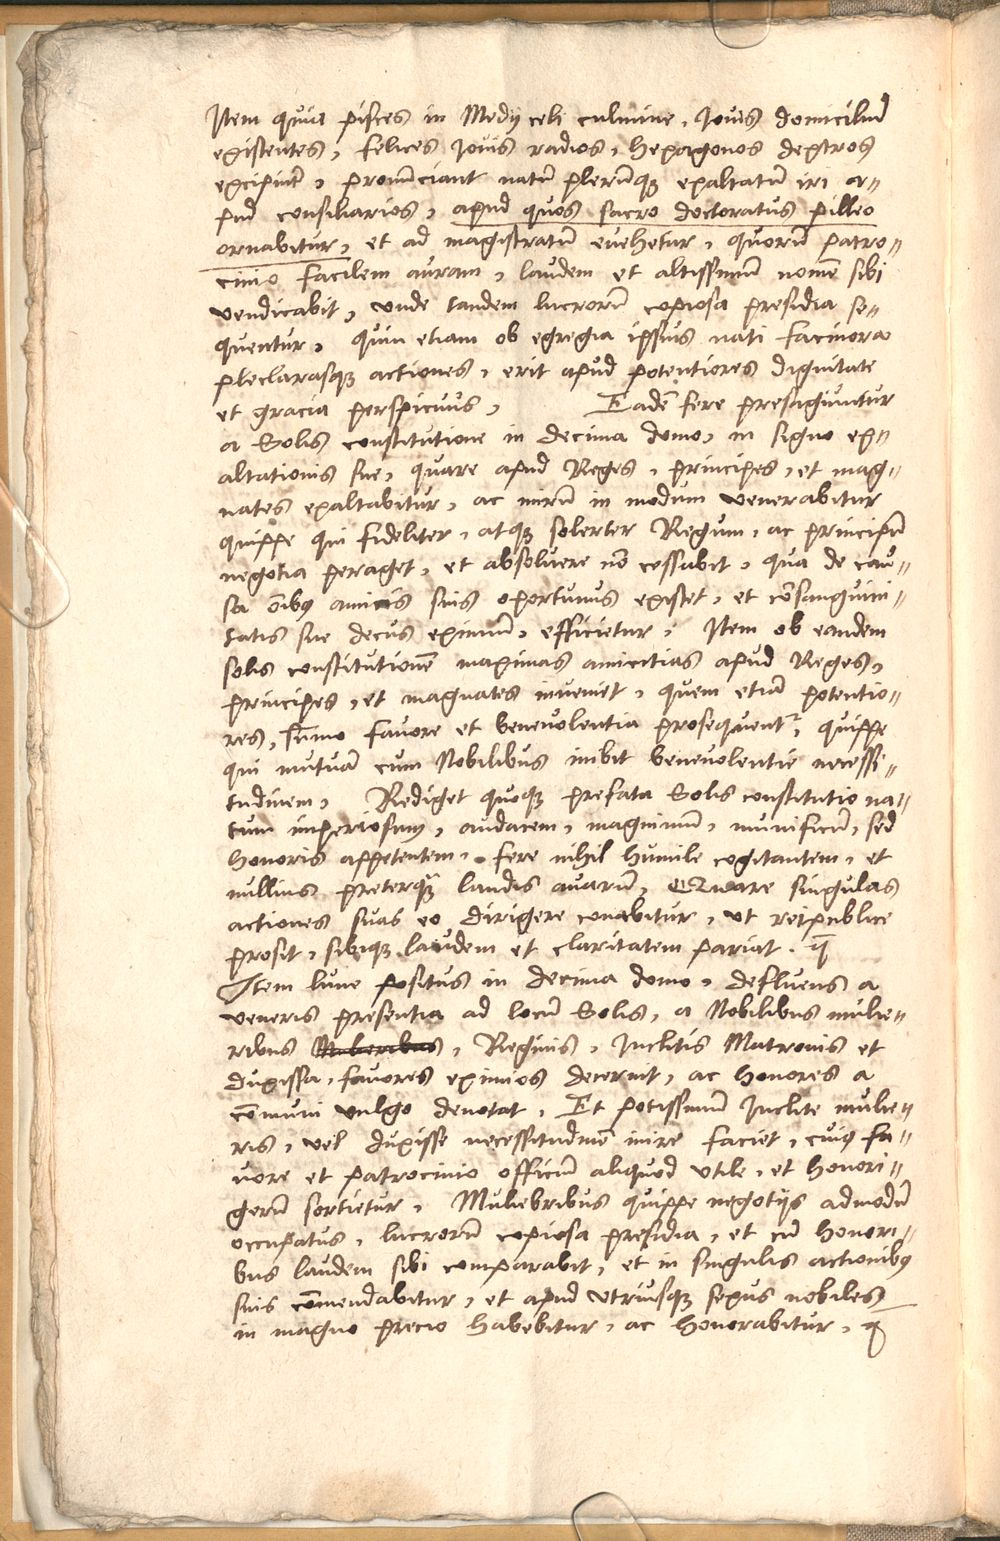 Item quia pisces in Medij celi culmine, Jovis domiciliũ
existentes, felices Jovis radios, hexagonos dextros
excipiũt, pronũciant natũ plerũqʒ exaltatũ iri a=
pud consiliarios, apud quos sacro doctoratus pilleo
ornabitur, et ad magistratũ evehetur, quorũ patro=
cinio facilem auram, laudem et altissimũ nomẽ sibi
vendicabit, unde tandem lucrorũ copiosa presidia se=
quentur, quin etiam ob egregia ipsius nati facinora
pleclarasqʒ actiones, erit apud potentiores dignitate
et gracia perspicuus, Eadẽ fere presagiuntur
a Solis constitutione in decima domo, in signo ex=
altationis sue, quare apud Reges, principes, et mag=
nates exaltabitur, ac mirũ in modum venerabitur
quippe qui fideliter, atqʒ solerter Regum, ac principũ
negotia peraget, et absoluere nõ cessabit, qua de cau=
sa õibꝰ amicis suis oportunus existet, et cõsanguini=
tatis sue decus eximiũ, efficietur, Item ob eandem
solis constitutionẽ maximas amicitias apud Reges,
principes, et magnates inveniet, quem etiã potentio=
res, sũmo favore et benevolentia prosequentʳ, quippe
qui mutuã cum Nobilibus inibit benevolentie necessi=
tudinem, Rediget quoqʒ prefata Solis constitutio na=
tum imperiosum, audacem, magnimũ, munificũ, sed
honoris appetentem, fere nihil humile cogitantem, et
nullius preterqʒ̃ laudis avarũ, Quare singulas
actiones suas eo dirigere conabitur, ut reipublice
prosit, sibiqʒ laudem et claritatem pariat.
Item lune positus in decima domo, defluens a
veneris presentia ad locũ Solis, a Nobilibus mulie=
ribus, Reginis, Inclitis Matronis et
duxissa, favores eximios decernit, ac honores a
cõmuni vulgo denotat, Et potissimũ Inclite mulie=
ris, vel duxisse necessitudinẽ inire faciet, cuiꝰ fa=
vore et patrocinio officiũ aliquod utile, et honori=
gerũ sortietur, Muliebribus quippe negotijs admodũ
occupatus, lucrorũ copiosa presidia, et cũ honori=
bus laudem sibi comparabit, et in singulis actionibꝰ
suis cõmendabitur, et apud utriusqʒ sexus nobiles
in magno precio habebitur, ac honorabitur,